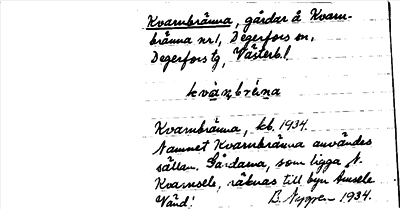 Kvarnbränna, gårdar å Kvarn-
bränna nr 1, Degerfors sn,
Degerfors tg, Västerb. l.
kvạ̈ṇbrẹ́na
Kvarnbränna, kb. 1934.
Namnet Kvarnbränna användes
sällan. Gårdarna, som ligga N.
Kvarnsele, räknas till byn Amsele
B. Nygren 1934.